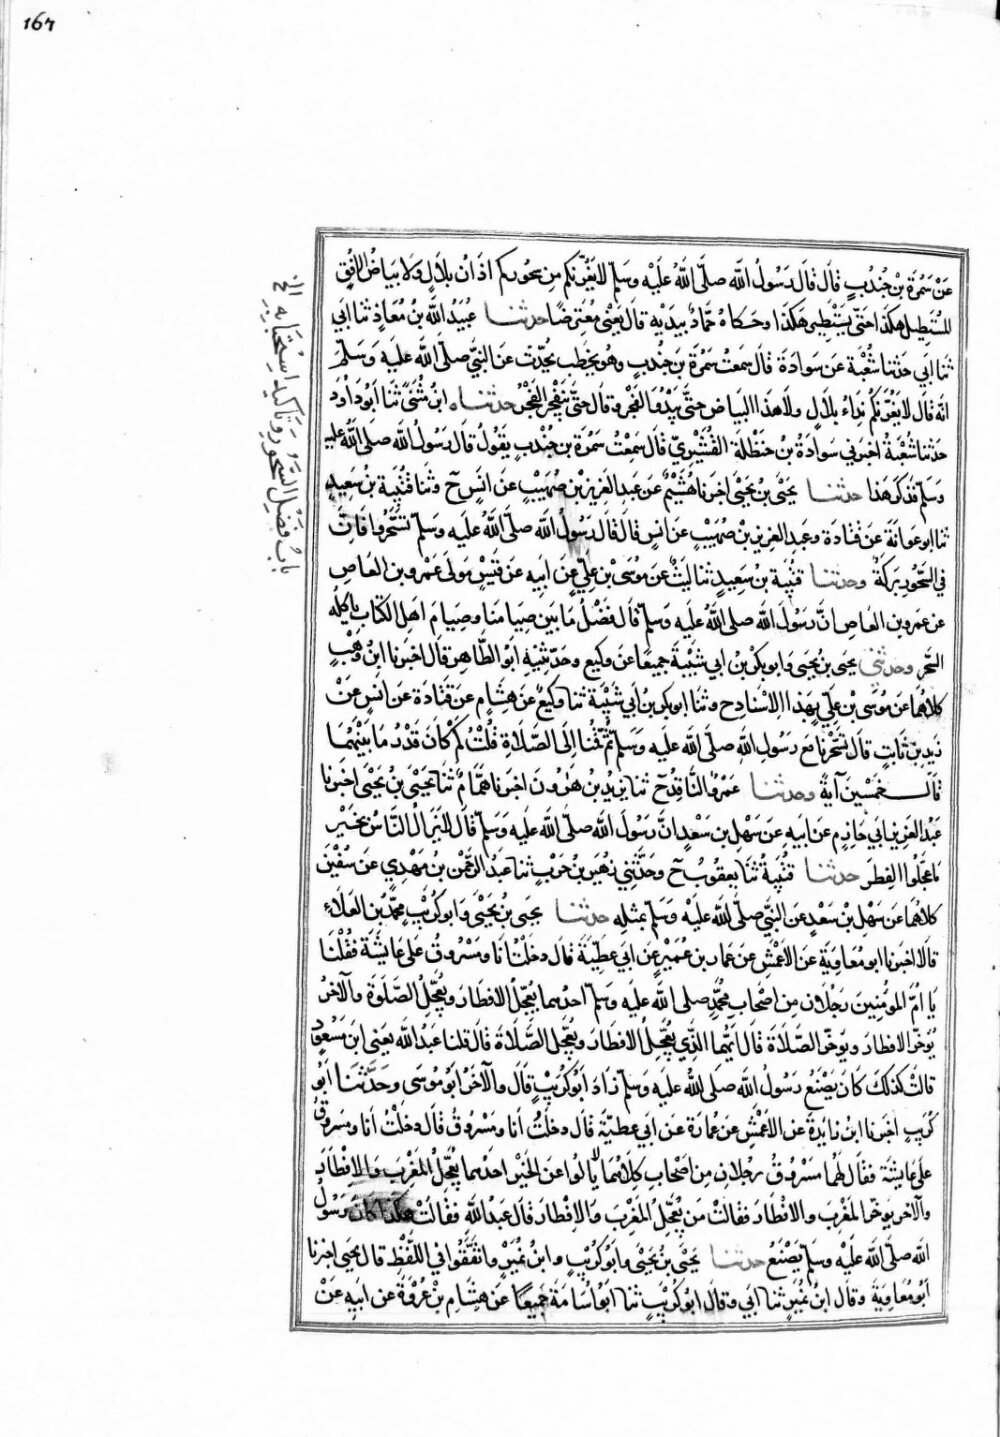 167
عن سمرة بن جندب قال قال رسول الله صلى الله عليه وسلم لا يغرنكم من سحوركم اذان بلال ولا بياض الافق
المستطيل هكذا حتى يستطير هكذا وحكاه حماد بيديه قال يعني معترضا حدثنا عبيد الله بن معاذ ثنا ابي
ثنا ابي حدثنا شعبة عن سوادة قال سمعت سمرة بن جندب وهو يخطب يحدث عن النبي صلى الله عليه وسلم
انه قال لا يغرنكم نداء بلال ولا هذا البياض حتى يبدو الفجر وقال حتى ينفجر الفجر حدثناه ابن مثنى ثنا ابو داود
حدثنا شعبة اخبرني سوادة بن حنظلة القشيري قال سمعت سمرة بن جندب يقول قال رسول الله صلى الله عليه
وسلم فذكر هذا حدثنا يحيى بن يحيى اخبرنا هشيم عن عبد العزيز بن صهيب عن انس ح وثنا قتيبة بن سعيد
ثنا ابو عوانة عن قتادة وعبد العزيز بن صهيب عن انس قال قال رسول الله صلى الله عليه وسلم تسحروا فان
في السحور بركة وحدثنا قتيبة بن سعيد ثنا ليث عن موسى بن علي عن ابيه عن قيس مولى عمرو بن العاص
عن عمرو بن العاص ان رسول الله صلى الله عليه وسلم قال فضل ما بين صيامنا وصيام اهل الكتاب اكلة
السحر وحدثني يحيى بن يحيى وابو بكر بن ابي شيبة جميعا عن وكيع وحدثنيه ابو الطاهر قال اخبرنا ابن وهب
كلاهما عن موسى بن علي بهذا الاسناد ح وثنا ابو بكر بن ابي شيبة ثنا وكيع عن هشام عن قتادة عن انس عن
زيد بن ثابت قال تسحرنا مع رسول الله صلى الله عليه وسلم ثم قمنا الى الصلاة قلت كم كان قدر ما بينهما
قال خمسين آية وحدثنا عمرو الناقد ح ثنا يزيد بن هارون اخبرنا همام ثنا يحيى بن يحيى اخبرنا
عبد العزيز بن ابي حازم عن ابيه عن سهل بن سعد ان رسول الله صلى الله عليه وسلم قال لا يزال الناس بخير
ما عجلوا الفطر حدثنا قتيبة ثنا يعقوب ح وحدثني زهير بن حرب ثنا عبد الرحمن بن مهدي عن سفين
كلاهما عن سهل بن سعد عن النبي صلى الله عليه وسلم بمثله حدثنا يحيى بن يحيى وابو كريب محمد بن العلاء
قالا اخبرنا ابو معاوية عن الاعمش عن عمار بن عمير عن ابي عطية قال دخلت انا ومسروق على عايشة فقلنا
يا ام المؤمنين رجلان من اصحاب محمد صلى الله عليه وسلم احدهما يعجل الافطار ويعجل الصلوة والآخر
يؤخر الافطار ويؤخر الصلاة قال ايهما الذي يعجل الافطار ويعجل الصلاة قال قلنا عبد الله يعني ابن مسعود
قالت كذلك كان يصنع رسول الله صلى الله عليه وسلم زاد ابو كريب قال والآخر ابو موسى وحدثنا ابو
كريب اخبرنا ابن زايدة عن الاعمش عن عمارة عن ابي عطية قال دخلت انا ومسروق قال دخلت انا ومسروق
على عايشة فقال لها مسروق رجلان من اصحاب كلاهما لا يالوا عن الخير احدهما يعجل المغرب والافطار
والآخر يؤخر المغرب والافطار فقالت من يعجل المغرب والافطار قال عبد الله فقالت هكذا كان رسول
الله صلى الله عليه وسلم يصنع حدثنا يحيى بن يحيى وابو كريب وابن نمير واتفقوا في اللفظ قال يحيى اخبرنا
ابو معاوية وقال ابن نمير ثنا ابي وقال ابو كريب ثنا ابو اسامة جميعا عن هشام بن عروة عن ابيه عن
باب فضل السحور وتاكيد استحبابه الخ